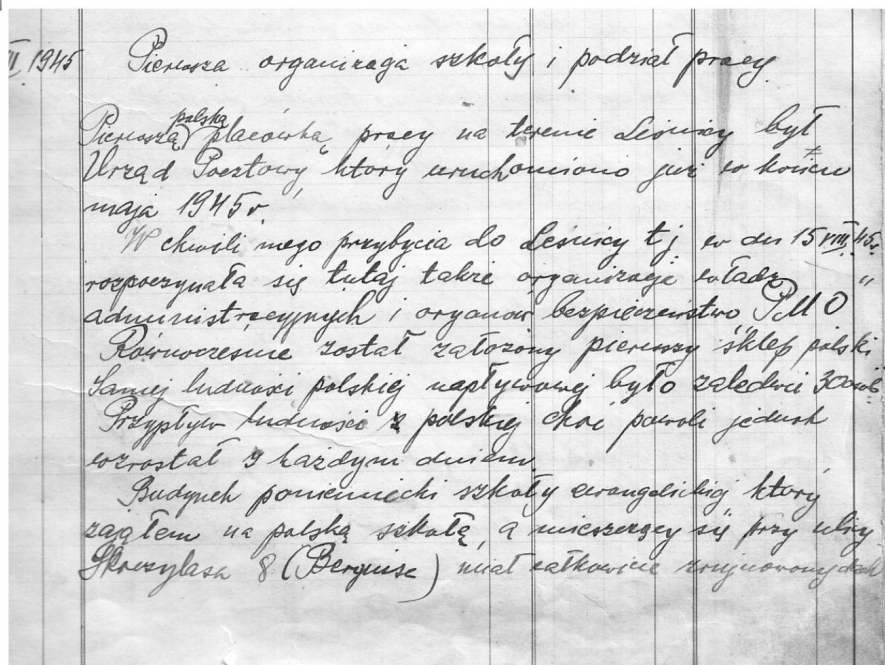 VIII. 1945 Pierwsza organizacja szkoły i podział pracy.
polską
Pierwszą placówką pracy na terenie Leśnicy był
Urząd Pocztowy który uruchomiono już w końcu
maja 1945 r.
W chwili mego przybycia do Leśnicy tj w dn 15 VIII. 45 r.
rozpoczynała się tutaj także organizacja władz "
administracyjnych i organów bezpieczeństwa P M O
Równocześnie został założony pierwszy sklep polski
Samej ludności polskiej napływowej było zaledwie 30 osób
Przypływ ludności polskiej choć powoli jednak
wzrastał z każdym dniem.
Budynek poniemiecki szkoły ewangelickiej który
zająłem na polską szkołę, a mieszczący się przy ulicy
8 ( ) miał całkowicie zrujnowany dach